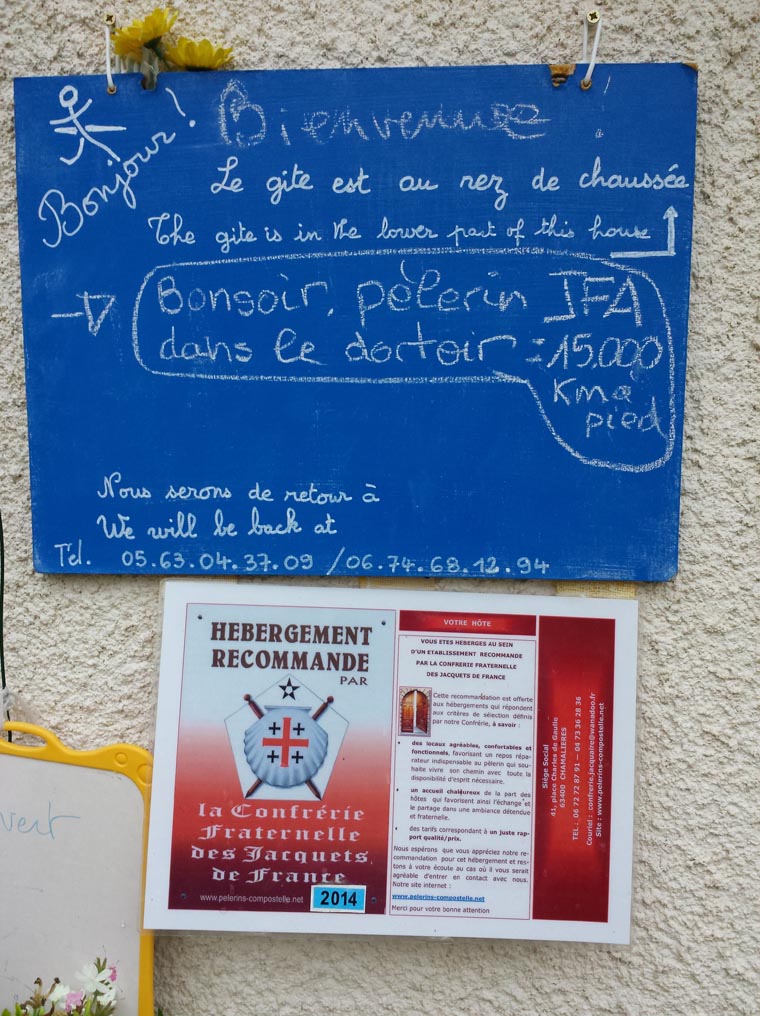 Bonjour !
Bienvenue !
Le gite est au rez de chaussée
The gite is in the lower part of this house
Bonsoir, pèlerin JFA
dans le dortoir = 15.000
Km à
pied
Nous serons de retour à
We will be back at
Tél. 05.63.04.37.09 / 06.74.68.12.94
HEBERGEMENT
RECOMMANDE
PAR
la Confrérie
Fraternelle
des Jacquets
de France
www.pelerins-compostelle.net
2014
VOTRE HÔTE
VOUS ETES HEBERGES AU SEIN
D'UN ETABLISSEMENT RECOMMANDE
PAR LA CONFRERIE FRATERNELLE
DES JACQUETS DE FRANCE
Cette recommandation est offerte
aux hébergements qui répondent
aux critères de sélection définis
par notre Confrérie, à savoir :
• des locaux agréables, confortables et
fonctionnels, favorisant un repos répa-
rateur indispensable au pèlerin qui sou-
haite vivre son chemin avec toute la
disponibilité d'esprit nécessaire.
• un accueil chaleureux de la part des
hôtes qui favorisent ainsi l'échange et
le partage dans une ambiance détendue
et fraternelle.
• des tarifs correspondant à un juste rap-
port qualité/prix.
Nous espérons que vous appréciez notre re-
commandation pour cet hébergement et res-
tons à votre écoute au cas où il vous serait
agréable d'entrer en contact avec nous.
Notre site internet :
www.pelerins-compostelle.net
Merci pour votre bonne attention
Siège Social
41, place Charles de Gaulle
63400 CHAMALIERES
TEL : 06 72 72 87 91 — 04 73 36 28 36
Courriel : confrerie.jacquaire@wanadoo.fr
Site : www.pelerins-compostelle.net